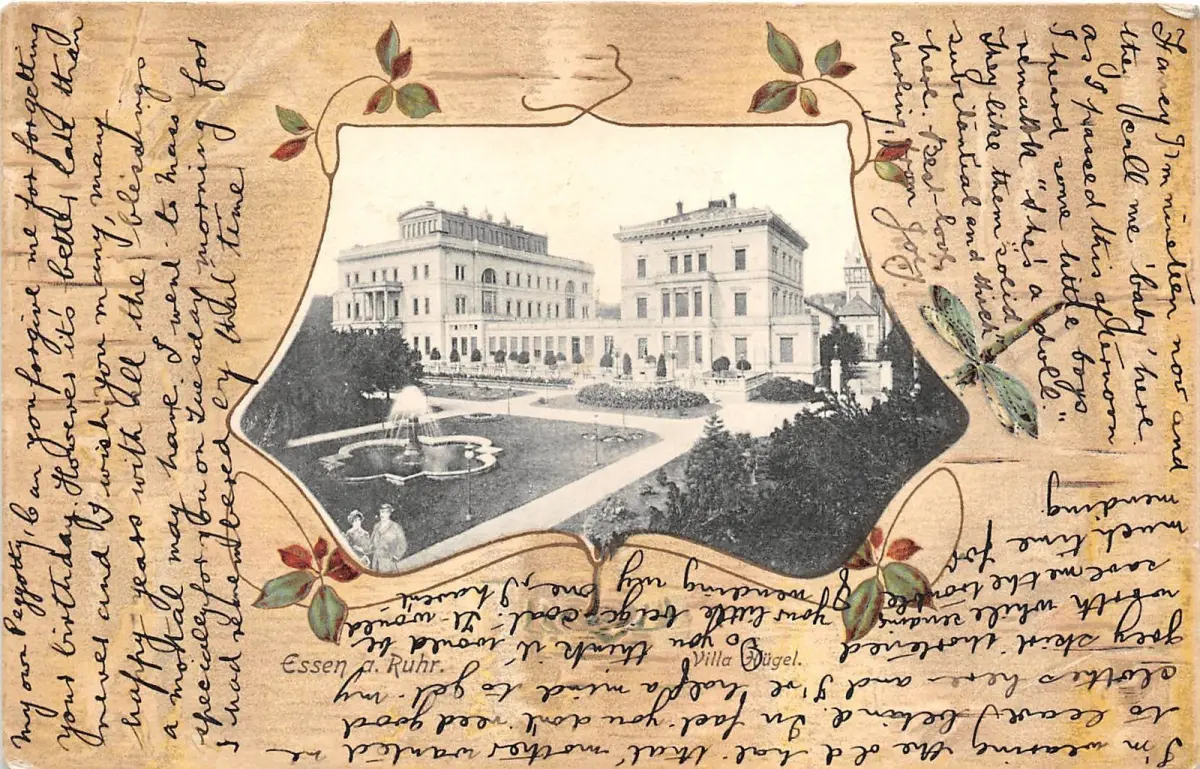 my own Peggotty, Can you forgive me for forgetting
your birthday. However it's better late than
never and I wish you many, many
happy years with all the blessings
a mortal may have. I went to mass
specially for you on Tuesday morning for
I had remembered by that time
I'm wearing the old hat that mother wanted me
to leave behind. In fact you don't need good
clothes here and I've half a mind to get my
grey skirt shortened Do you think it would be
worth while sending your little beige coat. It would
save me the trouble of mending my one, I haven't
much time for
mending.
Fancy I'm nineteen now and
they call me 'baby' here.
as I passed this afternoon
I heard some little boys
remark "she's a doll."
They like them solid
substantial and thick
here. Best love
darling, from Josy
Essen a. Ruhr.
Villa Hügel.